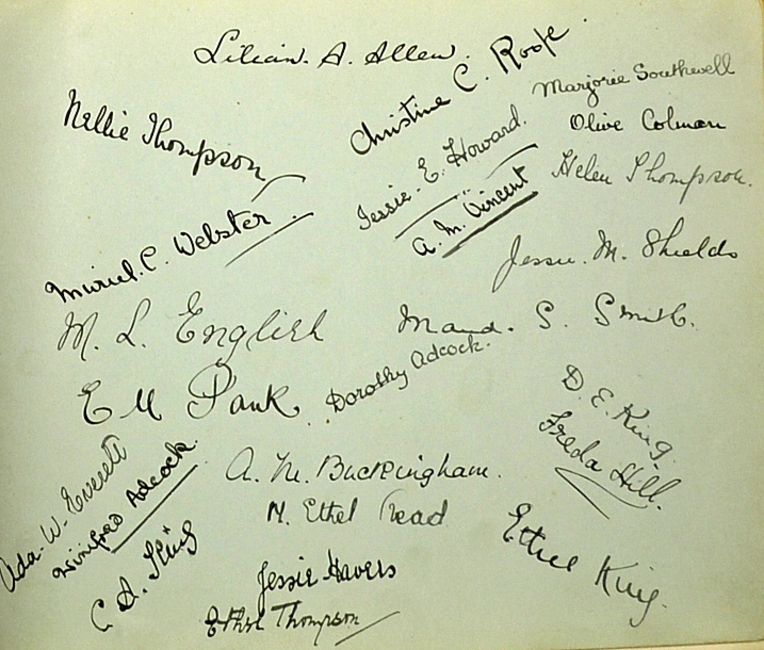 Lilian. A. Allen.
Christine C. Roope
Marjorie Southwell
Nellie Thompson
Olive Colman
Jessie. E. Howard.
Helen Thompson.
A. M. Vincent
Muriel. C. Webster
Jessie. M. Shields
M. L. English
Maud. S. Smith.
Dorothy Adcock.
E M Pank
D. E. King.
Freda Hill.
Ada. W. Everett
Winifred Adcock.
A. M. Buckingham.
Ethel Read
C. A. King
Ethel King.
Jessie Havers
Ethel Thompson